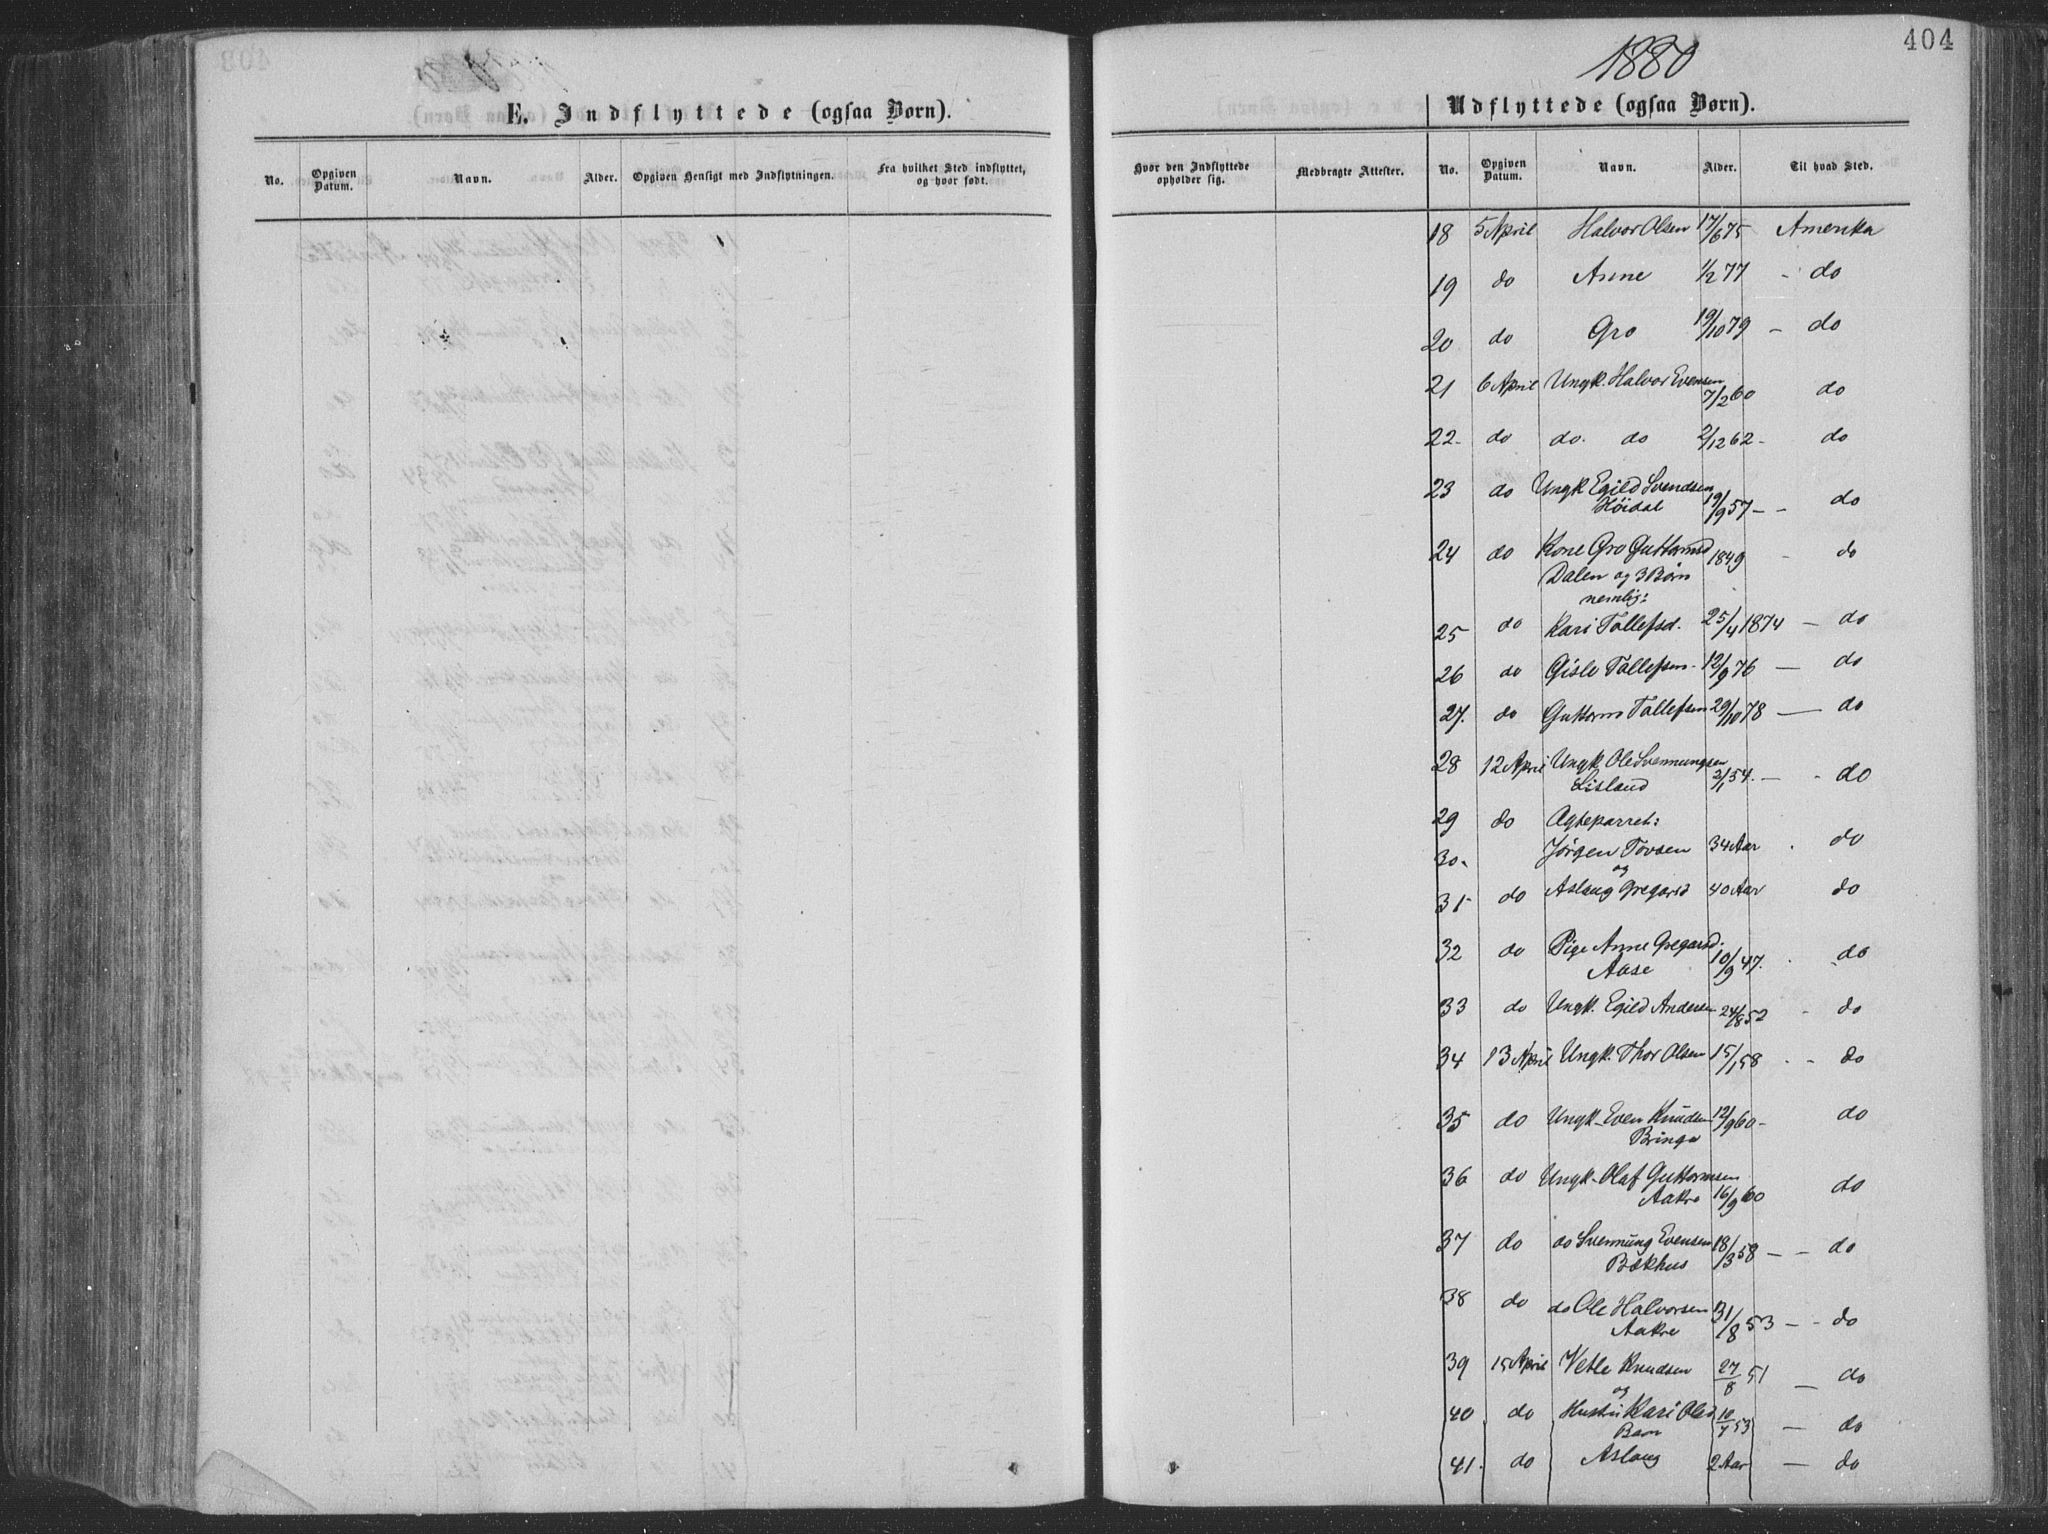 404
1880
E. Indflyttede (ogsaa Børn).
Udflyttede (ogsaa Børn).
No. Opgiven Datum. Navn. Alder. Opgiven Hensigt med Indflytningen. Fra hvilket Sted indflyttet, og hvor født. Hvor den Indflyttede opholder sig. Medbragte Attester. No. Opgiven Datum. Navn. Alder. Til hvad Sted.
18 5 April Halvor Olsen 17/6 75 Amerika
19 do Anne 1/2 77 - do
20 do Gro 19/10 79 - do
21 6 April Ungk. Halvor Evensen 7/2 60 do
22- do do. do 2/12 62- do
23 do Ungk Egild Svendsen 19/9 57 - - do
Høidal
24 do Kone Gro Guttormsd 1849 - do
Dalen og 3 Børn
nemlig:
25 do Kari Tollefsd. 25/4 1874 - do
26 do Gisle Tollefsen- 12/9 76 - do
27. do Guttorm Tollefsen 29/10 78 - do
28 12 April Ungk. Ole Svennungsen 2/1 54. - - do
Lisland
29 do Ægteparret:
30- Jørgen Tovsen 34 Aar . do
og
31 do Aslaug Gregarsd 40 Aar do
32 do Pige Anne Gregarsd. 10/9 47. . do
Aase
33 do Ungk. Egild Andersen 24/8 52 - do
34 13 April Ungk. Thor Olsen 15/1 58 - - do
35 do Ungk- Even Knudsen 12/9 60- do
Bringa
36 do Ungk- Olaf Guttormsen 16/9 60 do
Aakre
37 do do Svennung Evensen 18/3 58 - - do
Bækhus
38 do do Ole Halvorsen 31/8 53 - - do
Aakre
39 15 April Vetle Knudsen 27/8 51 - do
og
40 do Hustru Kari Olsd 10/7 53 - do
Barn
41. do Aslaug 2 Aar - do